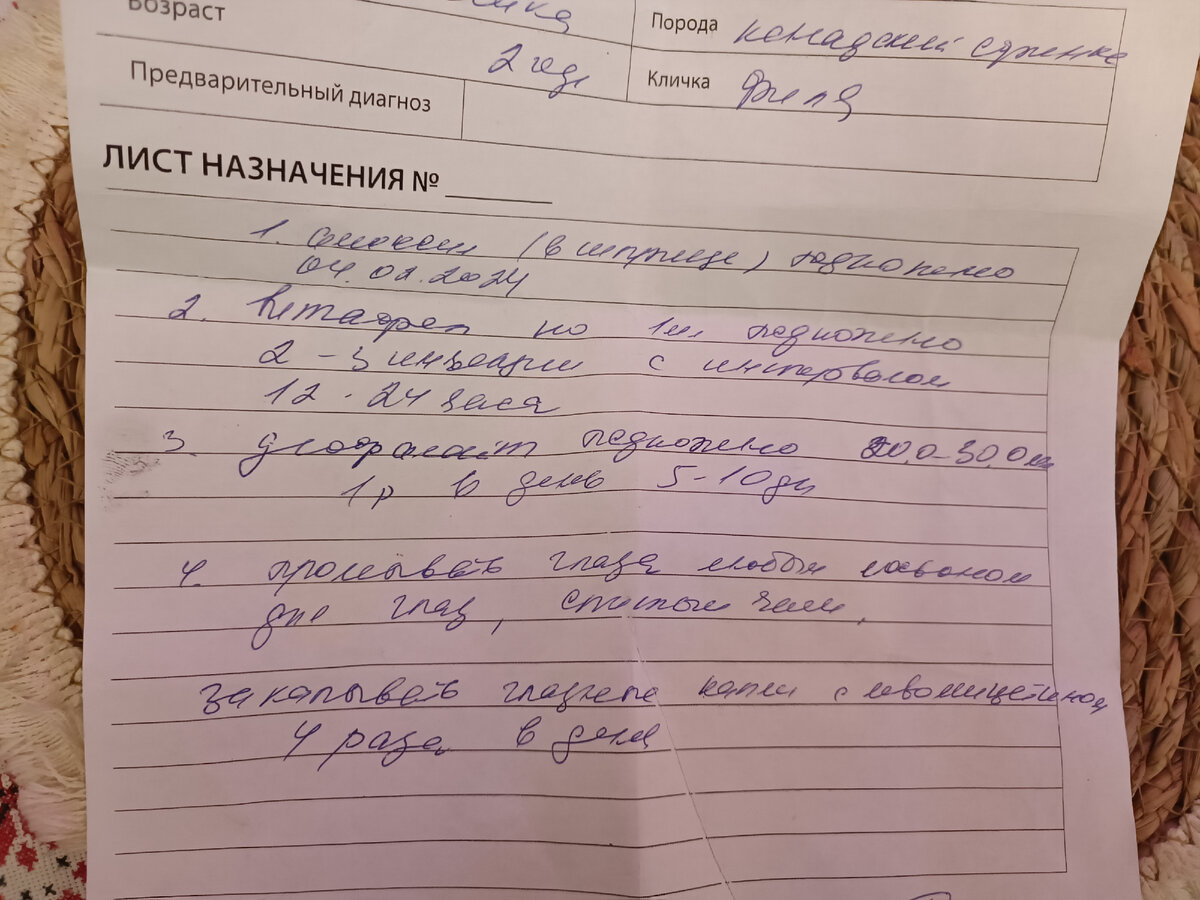 Возраст
2 года
Порода канадский сфинкс
Кличка Филя
Предварительный диагноз
ЛИСТ НАЗНАЧЕНИЯ №
1. (в шприце) подкожно
04.02.2024
2. по 1мл подкожно
2-3 инъекции с интервалом
12-24 часа
3. подкожно 20,0-30,0 мл
1р в день 5-10 дн
4. промывать глаза любым лосьоном
для глаз, спитым чаем,
закапывать глазные капли с левомицетином
4 раза в день